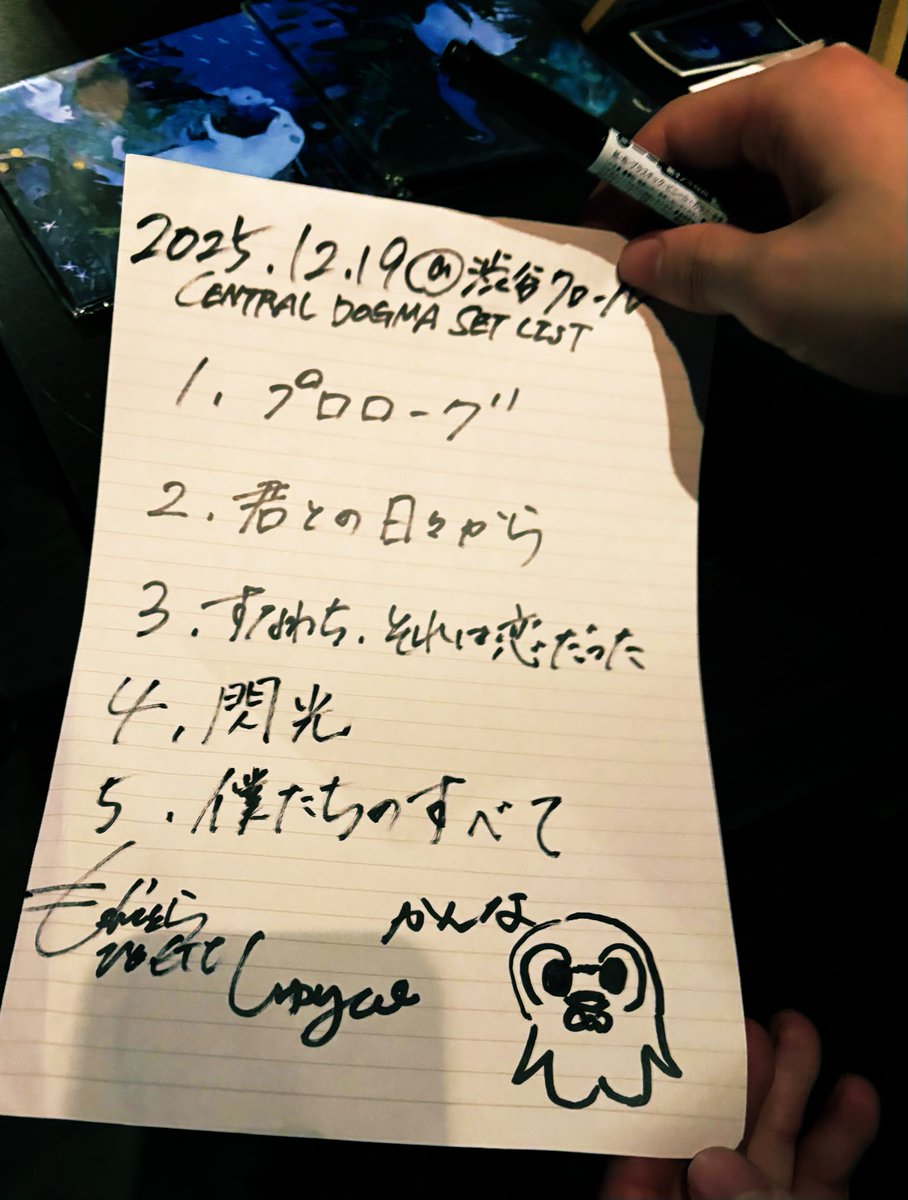 2025.12.19㊎渋谷クロール
CENTRAL DOGMA SET LIST
1. プロローグ
2. 君との日々から
3. すなわち、それは恋だった
4. 閃光
5. 僕たちのすべて
かんな